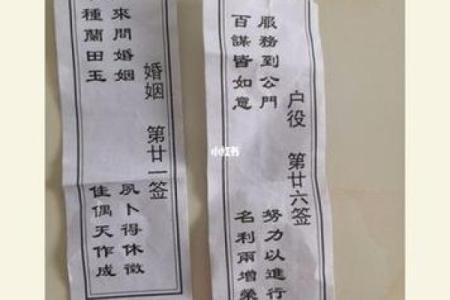 婚姻 第廿一签
來問婚姻
種蘭田玉
夙卜得休徵
佳偶天作成
户役 第廿六签
服務到公門
百謀皆如意
努力以進行
名利兩增榮
小红书